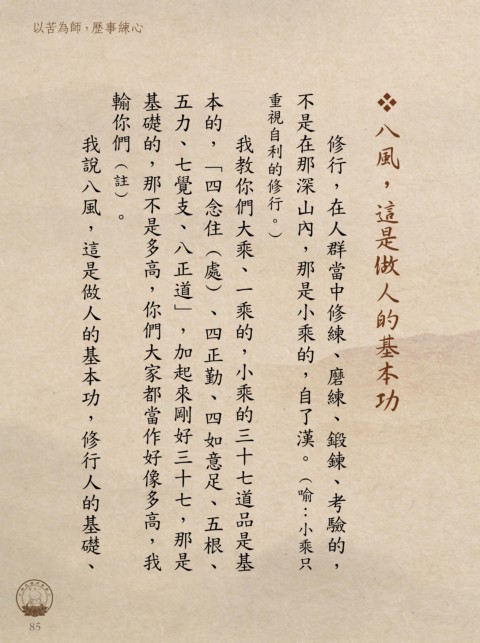 以苦為師，歷事練心
❖八風，這是做人的基本功
修行，在人群當中修練、磨練、鍛鍊、考驗的，
不是在那深山內，那是小乘的，自了漢。（喻：小乘只
重視自利的修行。）
我教你們大乘、一乘的，小乘的三十七道品是基
本的，「四念住（處）、四正勤、四如意足、五根、
五力、七覺支、八正道」，加起來剛好三十七，那是
基礎的，那不是多高，你們大家都當作好像多高，我
輸你們（註）。
我說八風，這是做人的基本功，修行人的基礎、
85